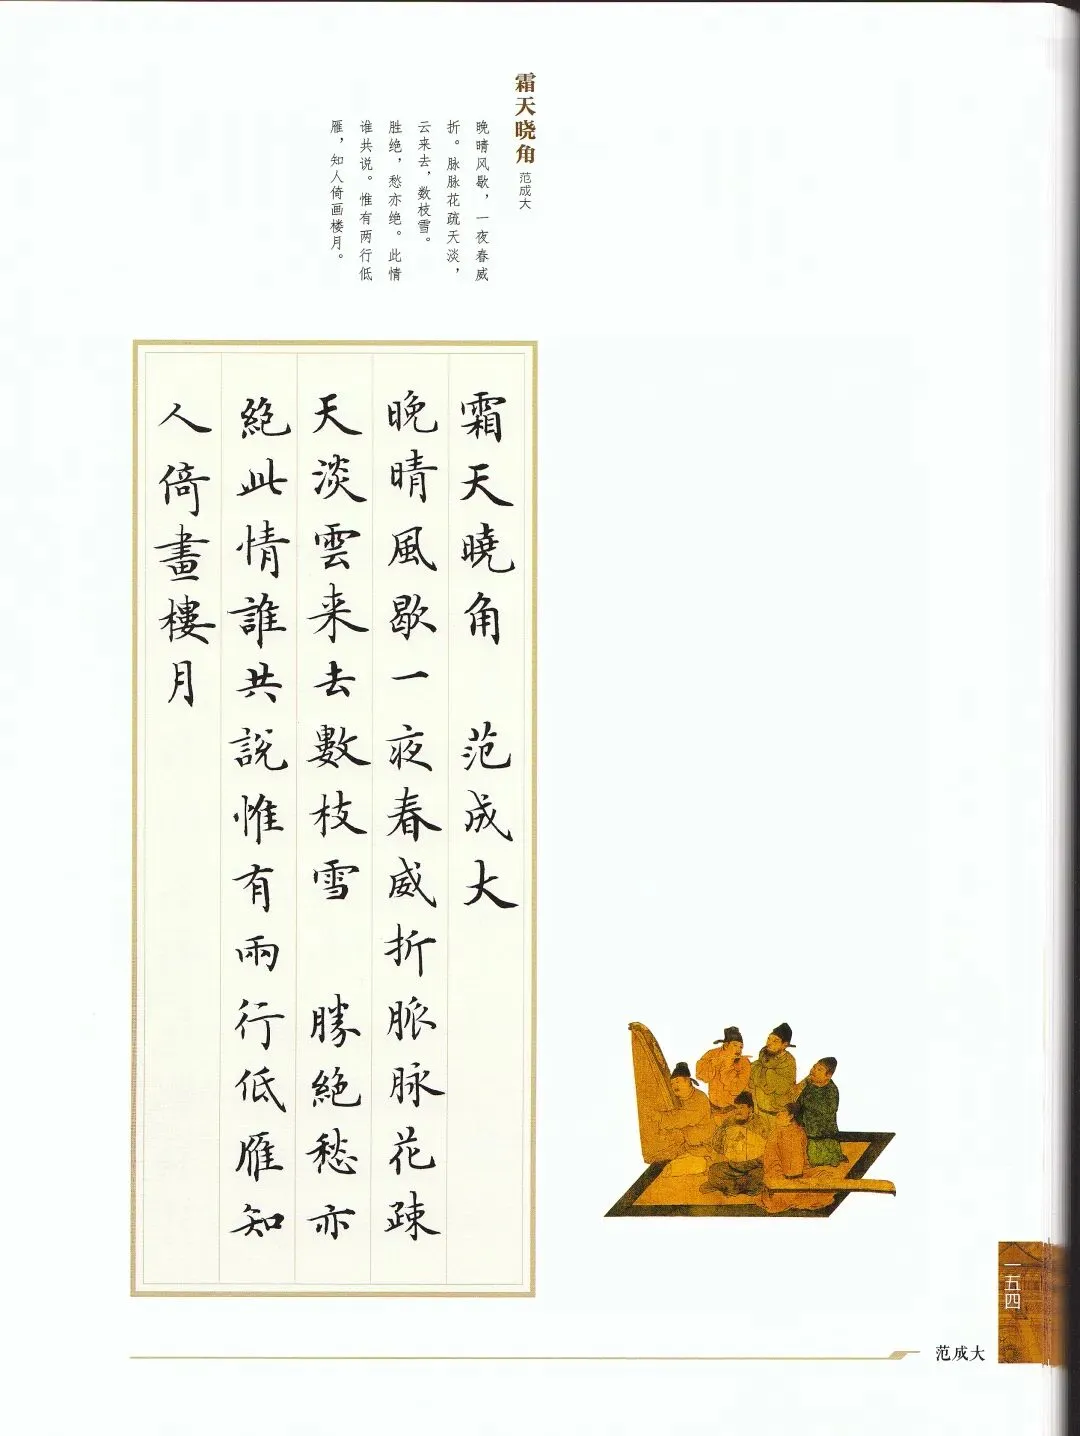 霜天晓角 范成大
晚晴风歇，一夜春威
折。脉脉花疏天淡，
云来去，数枝雪。
胜绝，愁亦绝。此情
谁共说。惟有两行低
雁，知人倚画楼月。
霜天曉角 范成大
晚晴風歇一夜春威折脈脉花疎
天淡雲来去數枝雪 勝絶愁亦
絶此情誰共說惟有兩行低雁知
人倚畫樓月
一五四
范成大